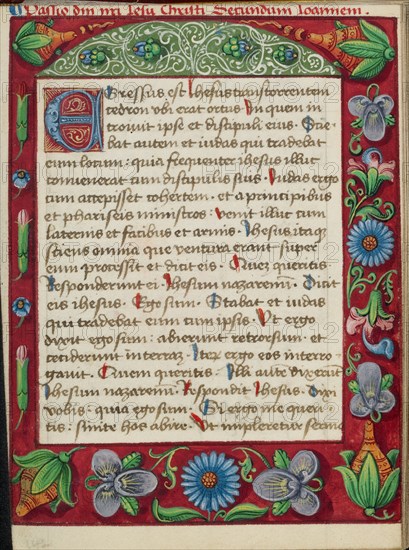 Passio dni nri Jesu Christi Secundum Joannem.
Egressus est Jhesus trans torrentem
cedron vbi erat ortus. In quem in
troiuit ipse et discipuli eius. Scie
bat autem et iudas qui tradebat
eum locum: quia frequenter ihesus illuc
conuenerat cum discipulis suis. Iudas ergo
cum accepisset cohortem. et a principibus
et phariseis ministros. venit illuc cum
laternis et facibus et armis. Jhesus itaq
sciens omnia que ventura erant super
eum processit et dicit eis. Quez queritis.
Responderunt ei. Jhesum nazarenu. Dicit
eis ihesus. Ego sum. Stabat et iudas
qui tradebat eum cum ipsis. Vt ergo
dixit ego sum: abierunt retrorsum. et
ceciderunt in terraz. Iter ergo eos interro
gauit. Quem queritis. Illi aute dixerut
Jhesum nazarenu. Respondit Jhesus. Dixi
vobis. quia ego sum. Si ergo me queri
tis: sinite hos abire. Vt impleretur sermo